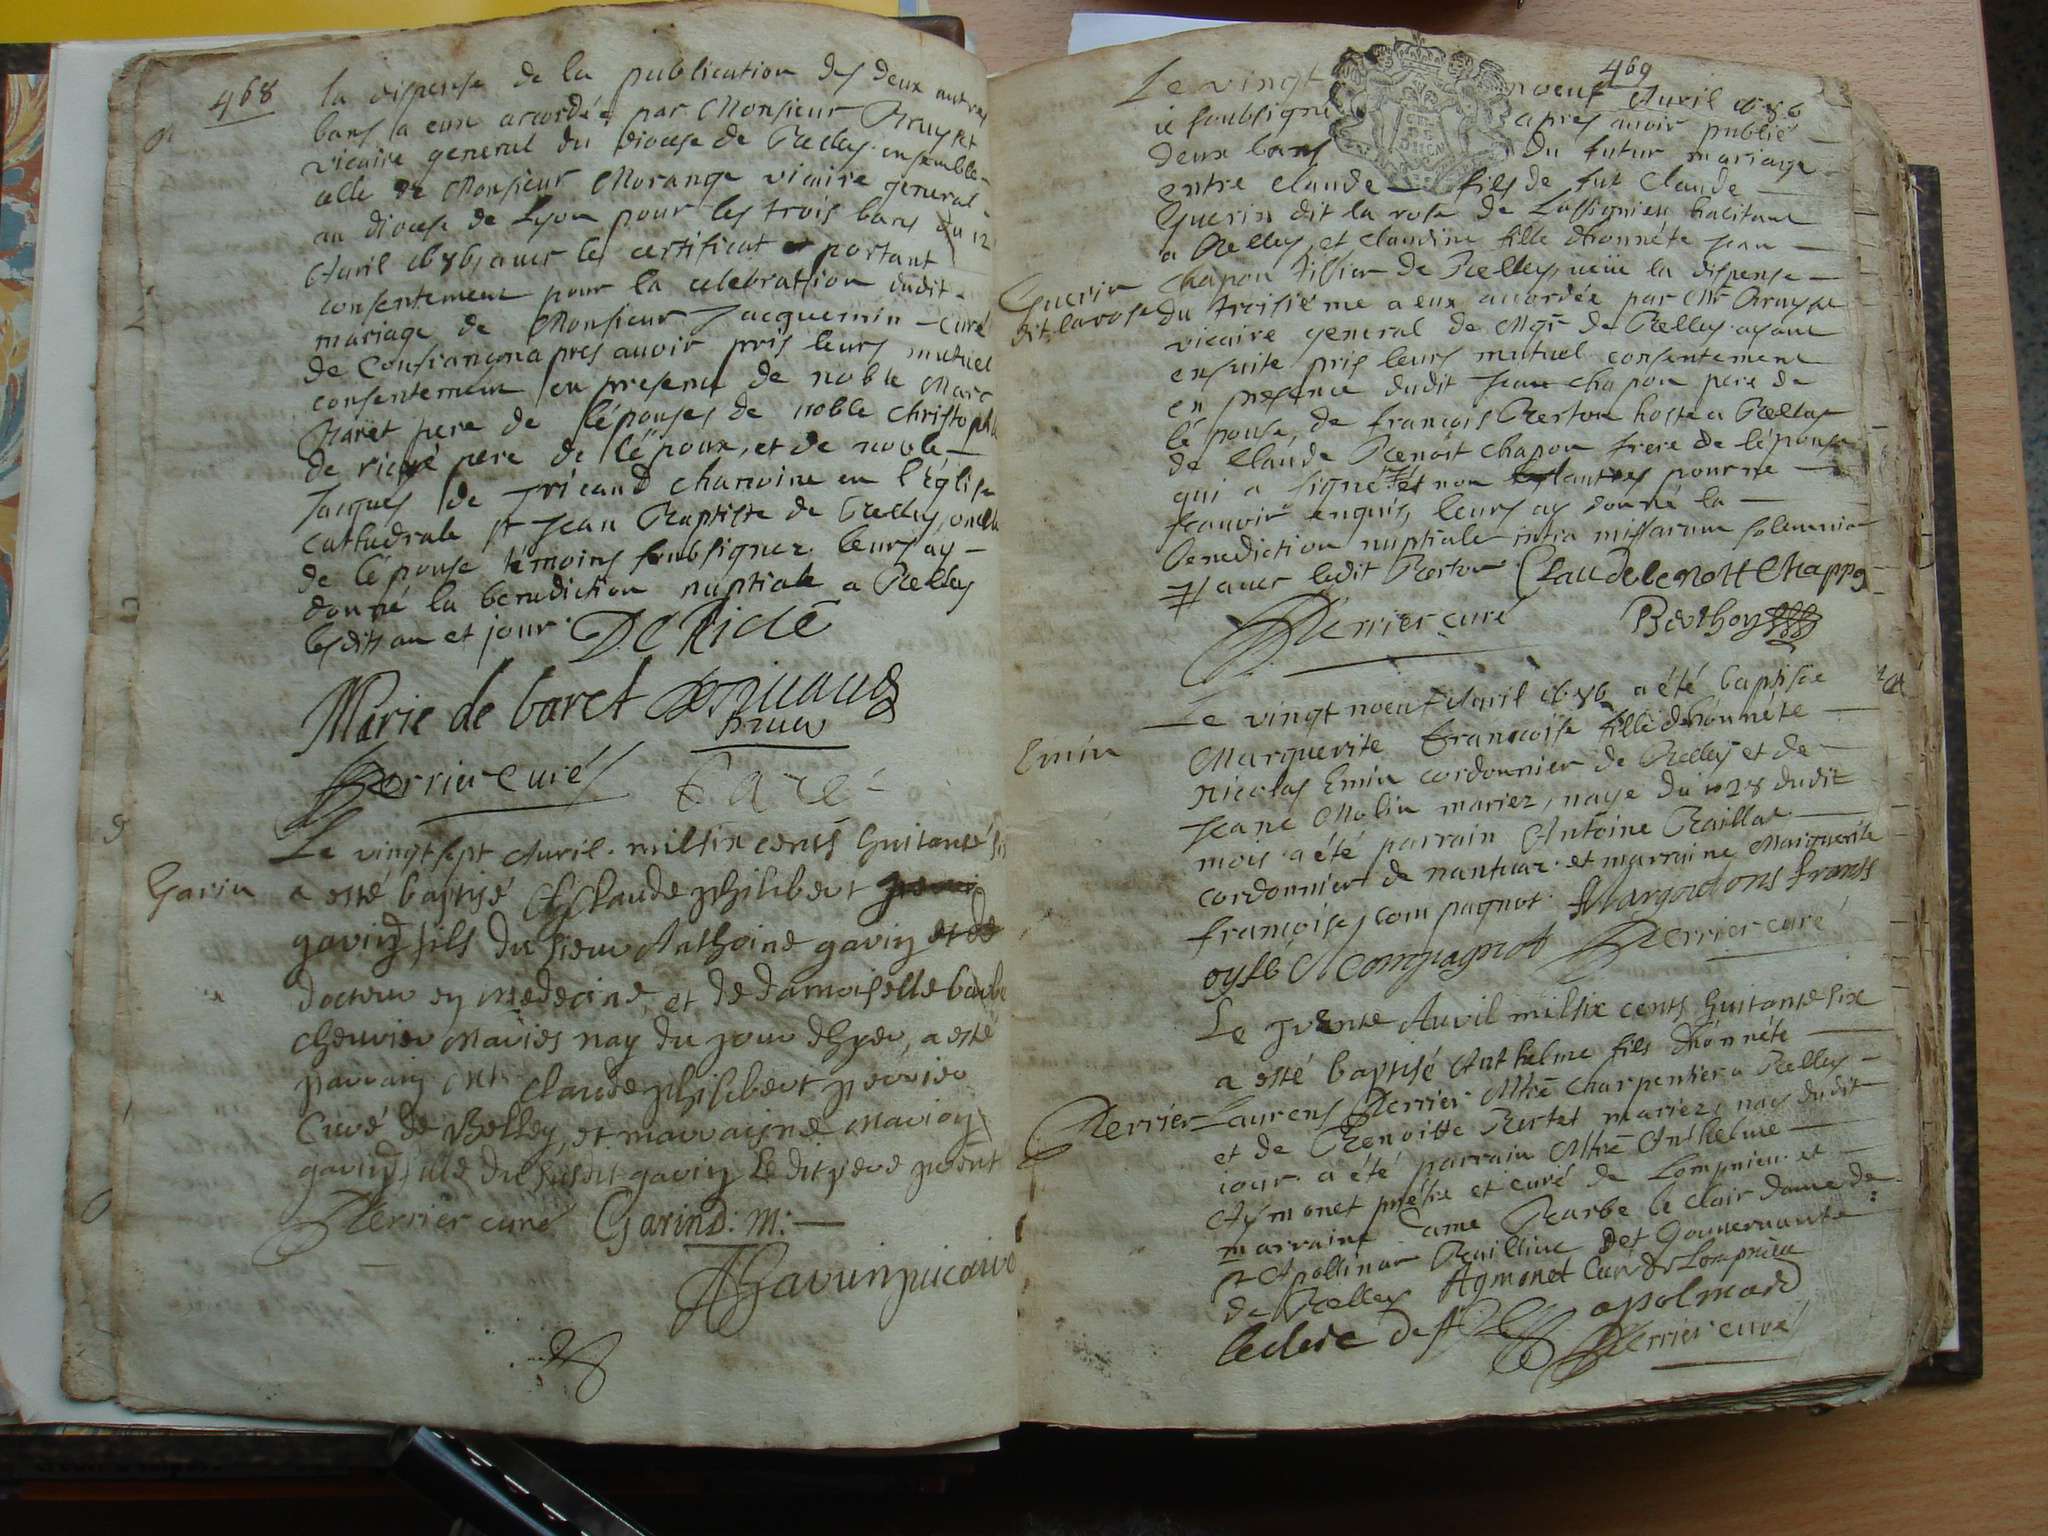 468
la dispense de la publication des deux autres
bans a eux accordée par Monsieur Bruyset
vicaire general du diocese de Belley ensemble
celle de Monsieur Morange vicaire general
au diocese de Lyon pour les trois bans du 12
Avril 1686 avec le certificat portant
consentement pour la celebration dudit
mariage de Monsieur Jacquemin curé
de Confrançon apres avoir pris leurs mutuel
consentement en presence de noble Marc
Baret pere de l'épouse, de noble Christophle
de ricyé pere de l'époux, et de noble
Jacques de Tricaud chanoine en l'Église
Cathedrale St Jean Baptiste de Belley, oncle
de l'épouse témoins soubsignez leurs ay
donné la benediction nuptiale a Belley
lesdits an et jour. De Ricié
Marie de baret De Tricaud
Perrier curé Baret
Garin
Le vingt sept Avril mil six cents huitante six
a esté baptisé Claude philibert
gavin fils du sieur Anthoine gavin
docteur en medecine, et de damoiselle barbe
chevrier mariés nay du jour dhyer, a esté
parrain Mre Claude philibert perrier
Curé de Belley, et marraine marion
gavin fille du susdit gavin Le dit pere present
Perrier curé Garin D: M:
469
Le vingt noeuf Avril 1686
ie soubsigné apres avoir publié
deux bans du futur mariage
entre Claude fils de fut Claude
Guerin dit la rose de Lassignieu habitant
a Belley, et Claudine fille d'honnéte Jean
Guerin
dit la rose
Chapon tissier de Belley, veüe la dispense
du troisiéme a eux accordée par Mr Bruyset
vicaire general de Mgr de Belley ayant
ensuite pris leurs mutuel consentement
en presence dudit Jean chapon pere de
l'épouse, de françois Berton hoste a Belley
de Claude Benoit chapon frere de l'épouse
qui a signé et non les autres pour ne
scavoir enquis, leurs ay donné la
benediction nuptiale intra missarum solemnia
avec ledit Berton Claude benoit Chappon
Perrier curé Berthon
Emin
Le vingt noeuf Avril 1686 a été baptisée
Marguerite françoise fille d'honnéte
Nicolas Emin cordonnier de Belley et de
Jeane Molin mariez, naye du 28 dudit
mois a été parrain Antoine Baillat
cordonnier de nantua et marraine Marguerite
françoise compagnot. Margoitons frans
oyse Compagnot Perrier curé
Le trente Avril mil six cents huitante six
a esté baptisé Anthelme fils d'honnéte
Perrier
Laurens Perrier Mtre charpentier a Belley
et de Benoitte Bertet mariez, nay dudit
iour a été parrain Mtre Anthelme
Aymonet prétre et curé de Lompnieu et
marraine dame Barbe le clair dame de
St Apollinar Baillive et Gouvernante
de Belley Aymonet Curé de Lompnieu
leclerc de St apolinard
Perrier curé